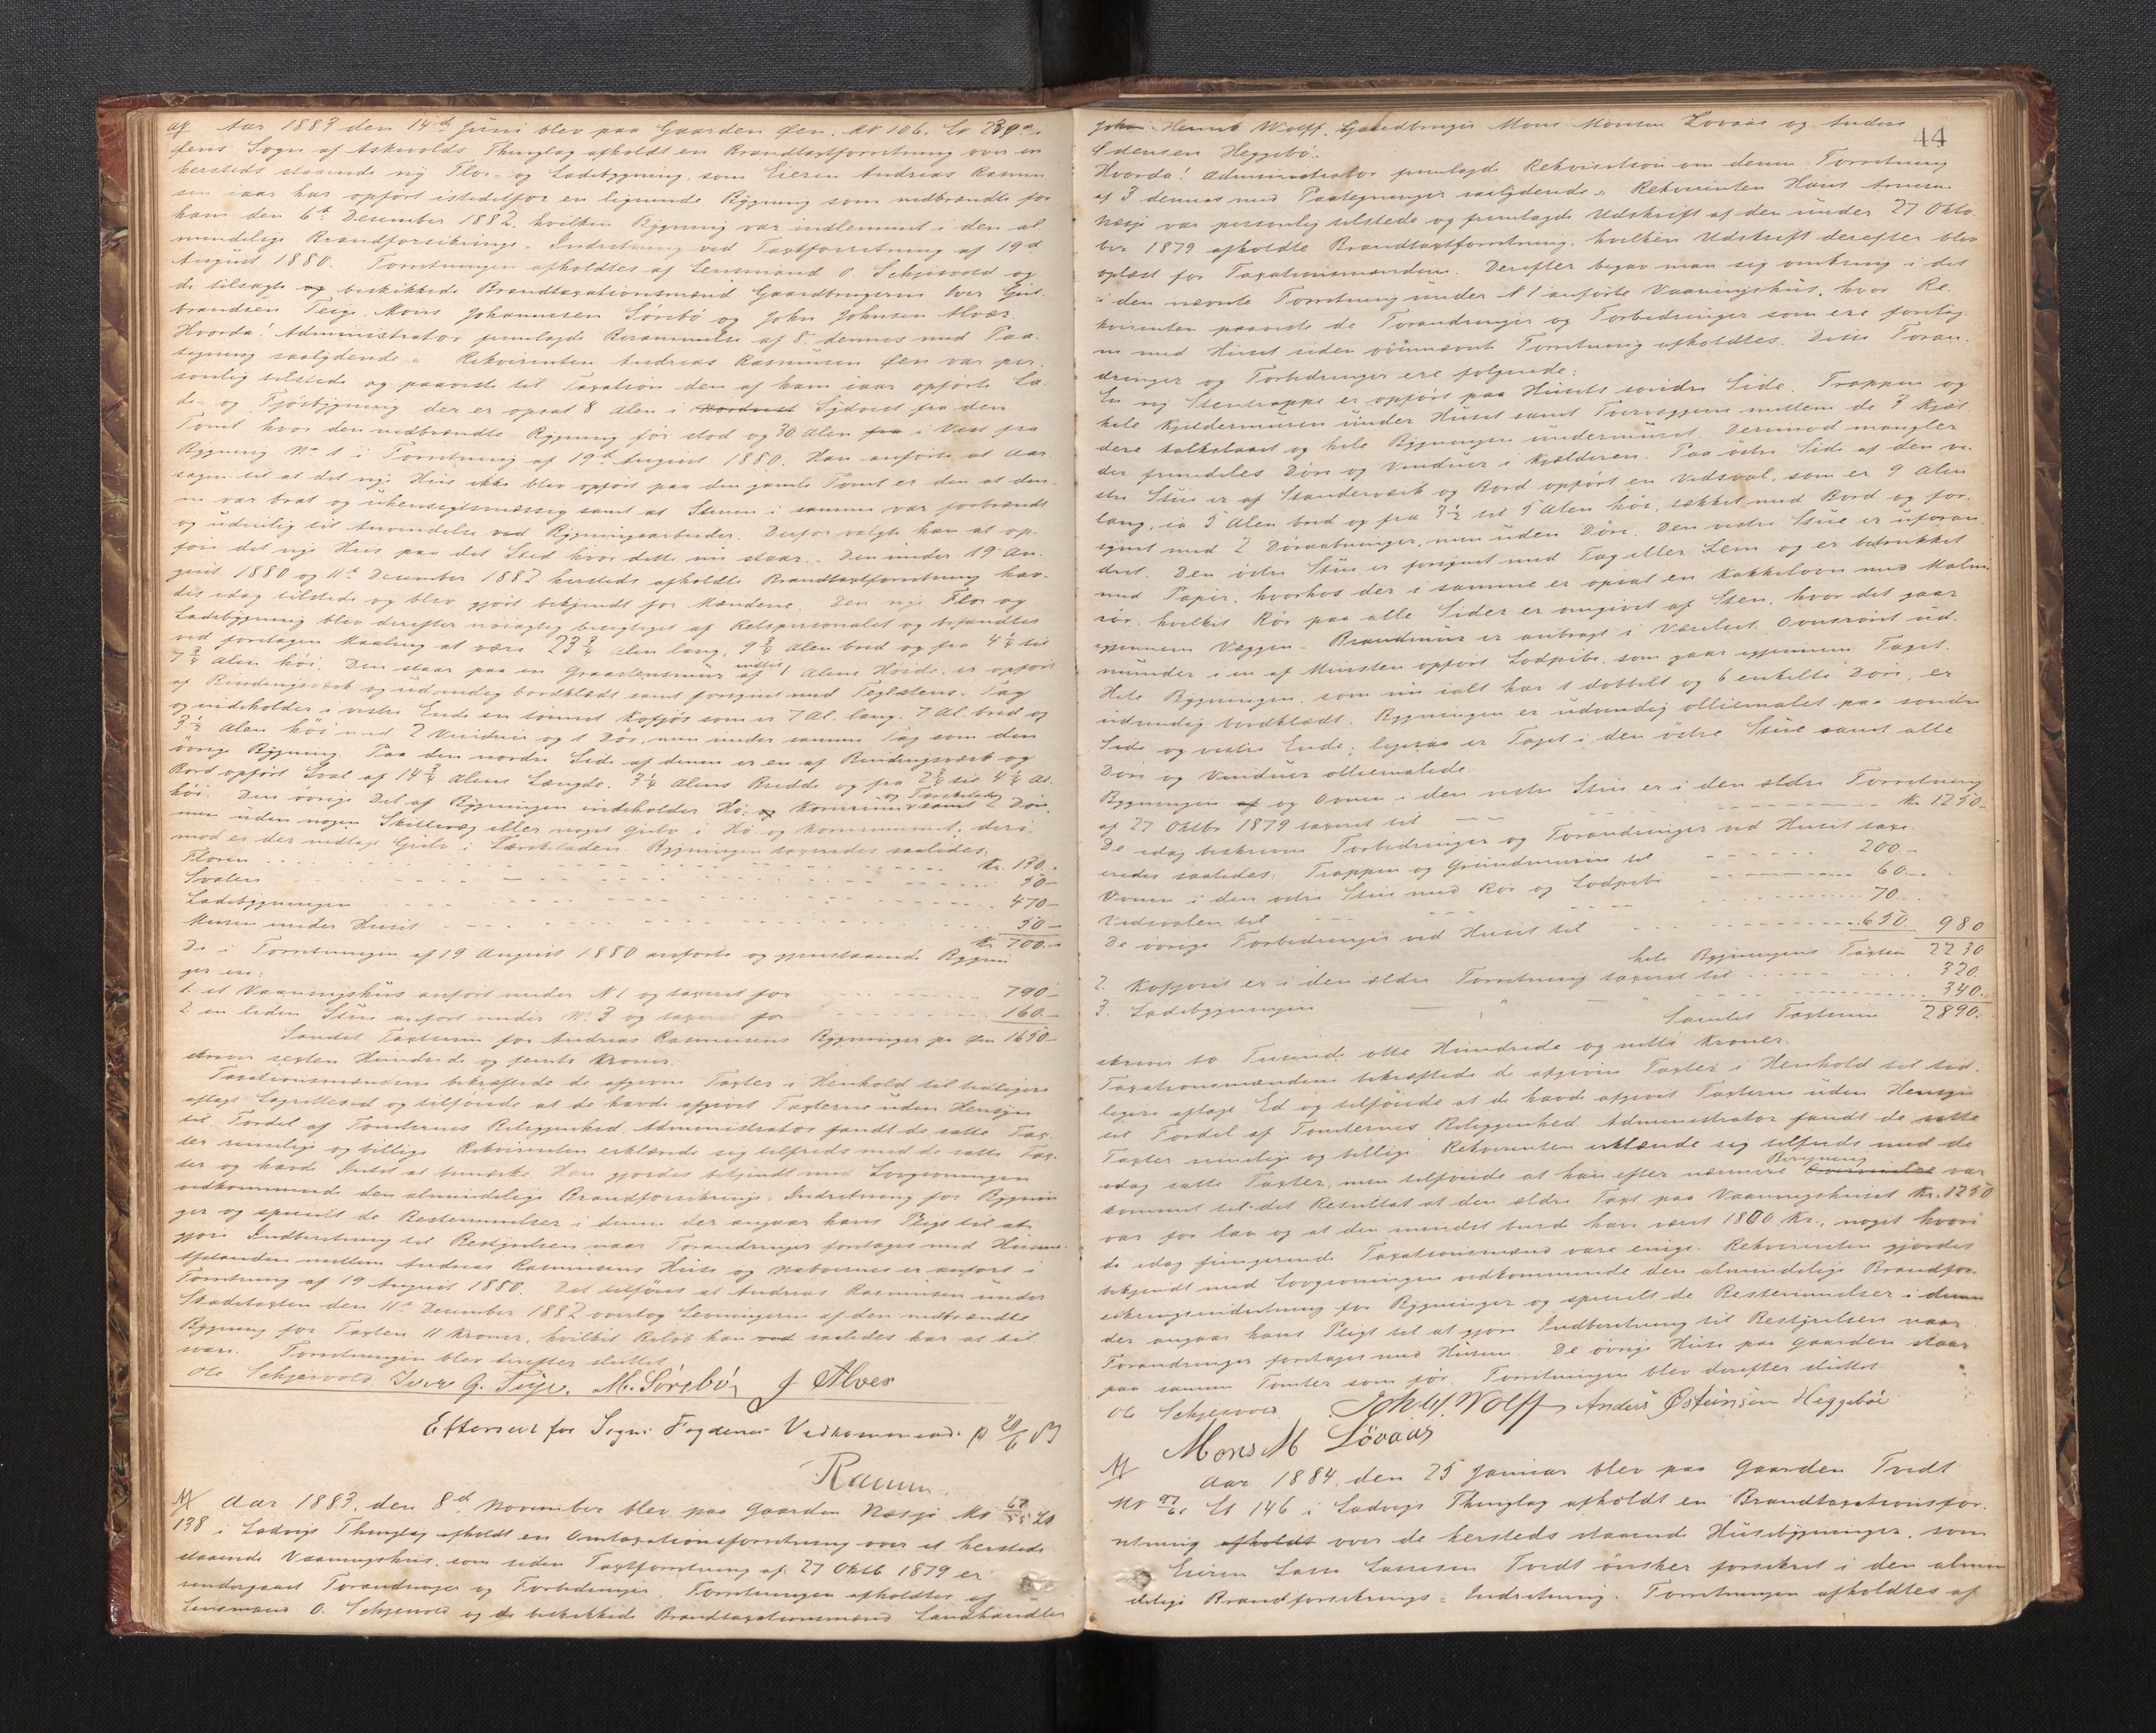 Aar 1883 den 14de Juni blev paa Gaarden Øen. M№ 106. Lb 239a
Øens Sogn af Askvolds Thinglag afholdt en Brandtaxtforretning over en
hersteds staaende ny Flor- og Ladebygning, som Eieren Andreas Rasmus-
sen iaar har opført istedetfor en lignende Bygning som nedbrændte for
ham den 6te Desember 1882, hvilken Bygning var indlemmet i den al-
mindelige Brandforsikrings-Indretning ved Taxtforretning af 19d
August 1880. Forretningen afholdtes af Lensmand O. Schjesvold og
de tilsagte og beskikkede Brandtaxationsmænd Gaardbrugerne Iver Gul-
brandsen Teige, Mons Johannessen Sørebø og John Johnsen Alvær.
Hvorda! Administrator fremlagde Berammelse af 8. dennes med Paa-
tegning saalydende. Rekvirenten Andreas Rasmusen Øen var per-
sonlig tilstede og paaviste til Taxation den af ham iaar opførte La-
de- og Fjøsbygning der er opsat 8 Alen i Nordvest Sydvest fra den
Tomt hvor den nedbrændte Bygning før stod og 30 Alen fra i Vest fra
Bygning No 1 i Forretning af 19d August 1880. Han anførte at Aar-
sagen til at det nye Hus ikke blev opført paa den gamle Tomt er den at den-
ne var brat og uhensigtsmæssig samt at Stenen i samme var forbrændt
og udulig til Anvendelse ved Bygningsarbeider. Derfor valgte han at op-
føre det nye Hus paa det Sted hvor dette nu staar. Den under 19 Au-
gust 1880 og 11te Desember 1882 hersteds afholdte Brandtaxtforretning hav-
des idag tilstede og blev gjort bekjendt for Mænderne. Den nye Flor og
Ladebygning blev derefter nøiagtig besigtiget af Retspersonalet og befandtes
ved foretagen Maaling at være 23 3/4 Alen lang, 9 3/4 Alen bred og fra 4 1/4 til
7 3/4 Alen høi. Den staar paa en Graastensmur af indtil 1 Alens Høide, er opført
af Bindingsværk og udvendig bordklædt samt forsynet med Teglstens-Tag
og indeholder i vestre Ende en tømret Kofjøs som er 7 Al. lang, 7 Al. bred og
3 1/2 Alen høi med 2 Vinduer og 1 Dør, men under samme Tag som den
øvrige Bygning. Paa den nordre Side af denne er en af Bindingsværk og
Bord opført Sval af 14 3/4 Alens Længde, 3 1/4 Alens Bredde og fra 2 3/4 til 4 1/4 Al.
høi. Den øvrige Del af Bygningen indeholder Hø, og Kornrum og Tærskelade samt 2 Døre
men uden nogen Skillevæg eller noget Gulv i Hø og Kornrummet; deri-
mod er der nedlagt Gulv i Tærskeladen. Bygningen taxeredes saaledes:
Floren Kr. 130.
Svalen 50 -
Ladebygningen 470 -
Muren under Huset 50 -
Kr 700. -
De i Forretningen af 19 August 1880 anførte og gjenstaaende Bygnin-
ger ere:
1. et Vaaningshus anført under N 1 og taxeret for 790 -
2 en liden Stue anført under N. 3 og taxeret for 160. -
Samlet Taxtsum for Andreas Rasmusens Bygninger pa Øen 1650 -
skriver sexten Hundrede og femti Kroner.
Taxationsmændene bekræftede de afgivne Taxter i Henhold til tidligere
aflagt Lagrettesed og tilføiede at de havde afgivet Taxterne uden Hensyn
til Fordel af Tomternes Beliggenhed. Administrator fandt de satte Tax-
ter rimelige og billige. Rekvirenten erklærede sig tilfreds med de satte Tax-
ter og havde Intet at bemærke. Han gjordes bekjendt med Lovgivningen
vedkommende den almindelige Brandforsikrings-Indretning for Bygnin-
ger og specielt de Bestemmelser i denne der angaar hans Pligt til at
gjøre Indberetning til Bestyrelsen naar Forandringer foretages med Husene.
Afstanden mellem Andreas Rasmusens Huse og Naboernes er anført i
Forretning af 19 August 1880. Det tilføies at Andreas Rasmusen under
Skadetaxten den 11te Desember 1882 overtog Levningerne af den nedbrændte
Bygning for Taxten 11 Kroner, hvilket Beløb han ved saaledes har at til-
svare. Forretningen blev derefter sluttet.
Ole Schjesvold. Iver G. Teige. M. Sørebø J Alver
Efterseet for Sogne Fogdenes Vedkommende p 20/6 83
Ramm.
Aar 1883, den 8de November blev paa Gaarden Næsje M№ 67/55 Lb
138 i Ladvigs Thinglag afholdt en Omtaxationsforretning over et hersteds
staaende Vaaningshus, som siden Taxtforretning af 27 Oktb 1879 er
undergaaet Forandringer og Forbedringer. Forretningen afholdtes af
Lensmand O. Schjesvold og de beskikkede Brandtaxationsmænd Landhandler
44
Johan Henrik Wolff, Gaardbruger Mons Monsen Løvaas og Anders
Østensen Heggebø.
Hvorda! Administrator fremlagde Rekvisition om denne Forretning
af 3 dennes med Paategninger saalydende. Rekvirenten Hans Arnesen
Næsje var personlig tilstede og fremlagde Udskrift af den under 27 Okto-
ber 1879 afholdte Brandtaxtforretning, hvilken Udskrift derefter blev
oplæst for Taxationsmændene. Derefter begav man sig omkring i det
i den nævnte Forretning under N 1 anførte Vaaningshus, hvor Re-
kvirenten paaviste de Forandringer og Forbedringer som ere foretag-
ne med Huset siden ovennævnte Forretning afholdtes. Disse Foran-
dringer og Forbedringer ere følgende:
En ny Stentrappe er opført paa Husets søndre Side. Trappen og
hele Kjeldermuren under Huset samt Tvervæggene mellem de 3 Kjæl-
dere kalkslaaet og hele Bygningen undermuret. Derimod mangler
der fremdeles Døre og Vinduer i Kjælderen. Paa østre Side af den ve-
stre Stue er af Standerværk og Bord opført en Vedsval, som er 9 Alen
lang, ca 5 Alen bred og fra 3 1/2 til 5 Alen høi, tækket med Bord og for-
synet med 2 Døraabninger, men uden Døre. Den vestre Stue er uforan-
dret. Den østre Stue er forsynet med Tag eller Lem og er betrukket
med Papir, hvorhos der i samme er opsat en Kakkelovn med Malm-
rør, hvilket Rør paa alle Sider er omgivet af Sten, hvor det gaar
igjennem Væggen. Brandmur er anbragt i Værelset. Ovnsrøret ud-
munder i en af Mursten opført Lodpibe, som gaar igjennem Taget.
Hele Bygningen, som nu ialt har 1 dobbelt og 6 enkelte Døre, er
udvendig bordklædt. Bygningen er udvendig oliemalet paa søndre
Side og vestre Ende; ligesaa er Taget i den østre Stue samt alle
Døre og Vinduer oliemalede.
Bygningen af og Ovnen i den vestre Stue er i den ældre Forretning
af 27 Oktbr 1879 taxeret til Kr 1250.-
De idag beskrevne Forbedringer og Forandringer ved Huset taxe-
eredes saaledes: Trappen og Grundmuren til 200 -
Ovnen i den østre Stue med Rør og Lodpibe 60. -
Vedsvalen til 70.
De øvrige Forbedringer ved Huset til 650. 980
hele Bygningens Taxter 2230
2. Kofjøset er i den ældre Forretning taxeret til 320.
3. Ladebygningen " 340.
Samlet Taxtsum 2890.
skriver to Tusinde otte Hundrede og nitti Kroner.
Taxationsmændene bekræftede de afgivne Taxter i Henhold til tid-
ligere aflagt Ed og tilføiede at de havde afgivet Taxterne uden Hensyn
til Fordel af Tomternes Beliggenhed. Administrator fandt de satte
Taxter rimelige og billige. Rekvirenten erklærede sig tilfreds med de
idag satte Taxter, men tilføiede at han efter nærmere Beregning var
kommet til det Resultat at den ældre Taxt paa Vaaningshuset Kr. 1250
var for lav og at den mindst burde have været 1800 Kr., noget hvori
de idag fungerende Taxationsmænd vare enige. Rekvirenten gjordes
bekjendt med Lovgivningen vedkommende den almindelige Brandfor-
sikringsindretning for Bygninger og specielt de Bestemmelser i denne
der angaar hans Pligt til at gjøre Indberetning til Bestyrelsen naar
Forandringer foretages med Husene. De øvrige Huse paa Gaarden staar
paa samme Tomter som før. Forretningen blev derefter sluttet.
Ole Schjesvold. Joh. H. Wolff Anders Østensøn Heggebøe
Mons M Løvaas
Aar 1884, den 25 Januar blev paa Gaarden Tvedt
M№ 97/61 Lb 146 i Ladvigs Thinglag afholdt en Brandtaxationsfor-
retning afholdt over de hersteds staaende Husebygninger, som
Eieren Lasse Lassesen Tvedt ønsker forsikret i den almin-
delige Brandforsikrings-Indretning. Forretningen afholdtes af